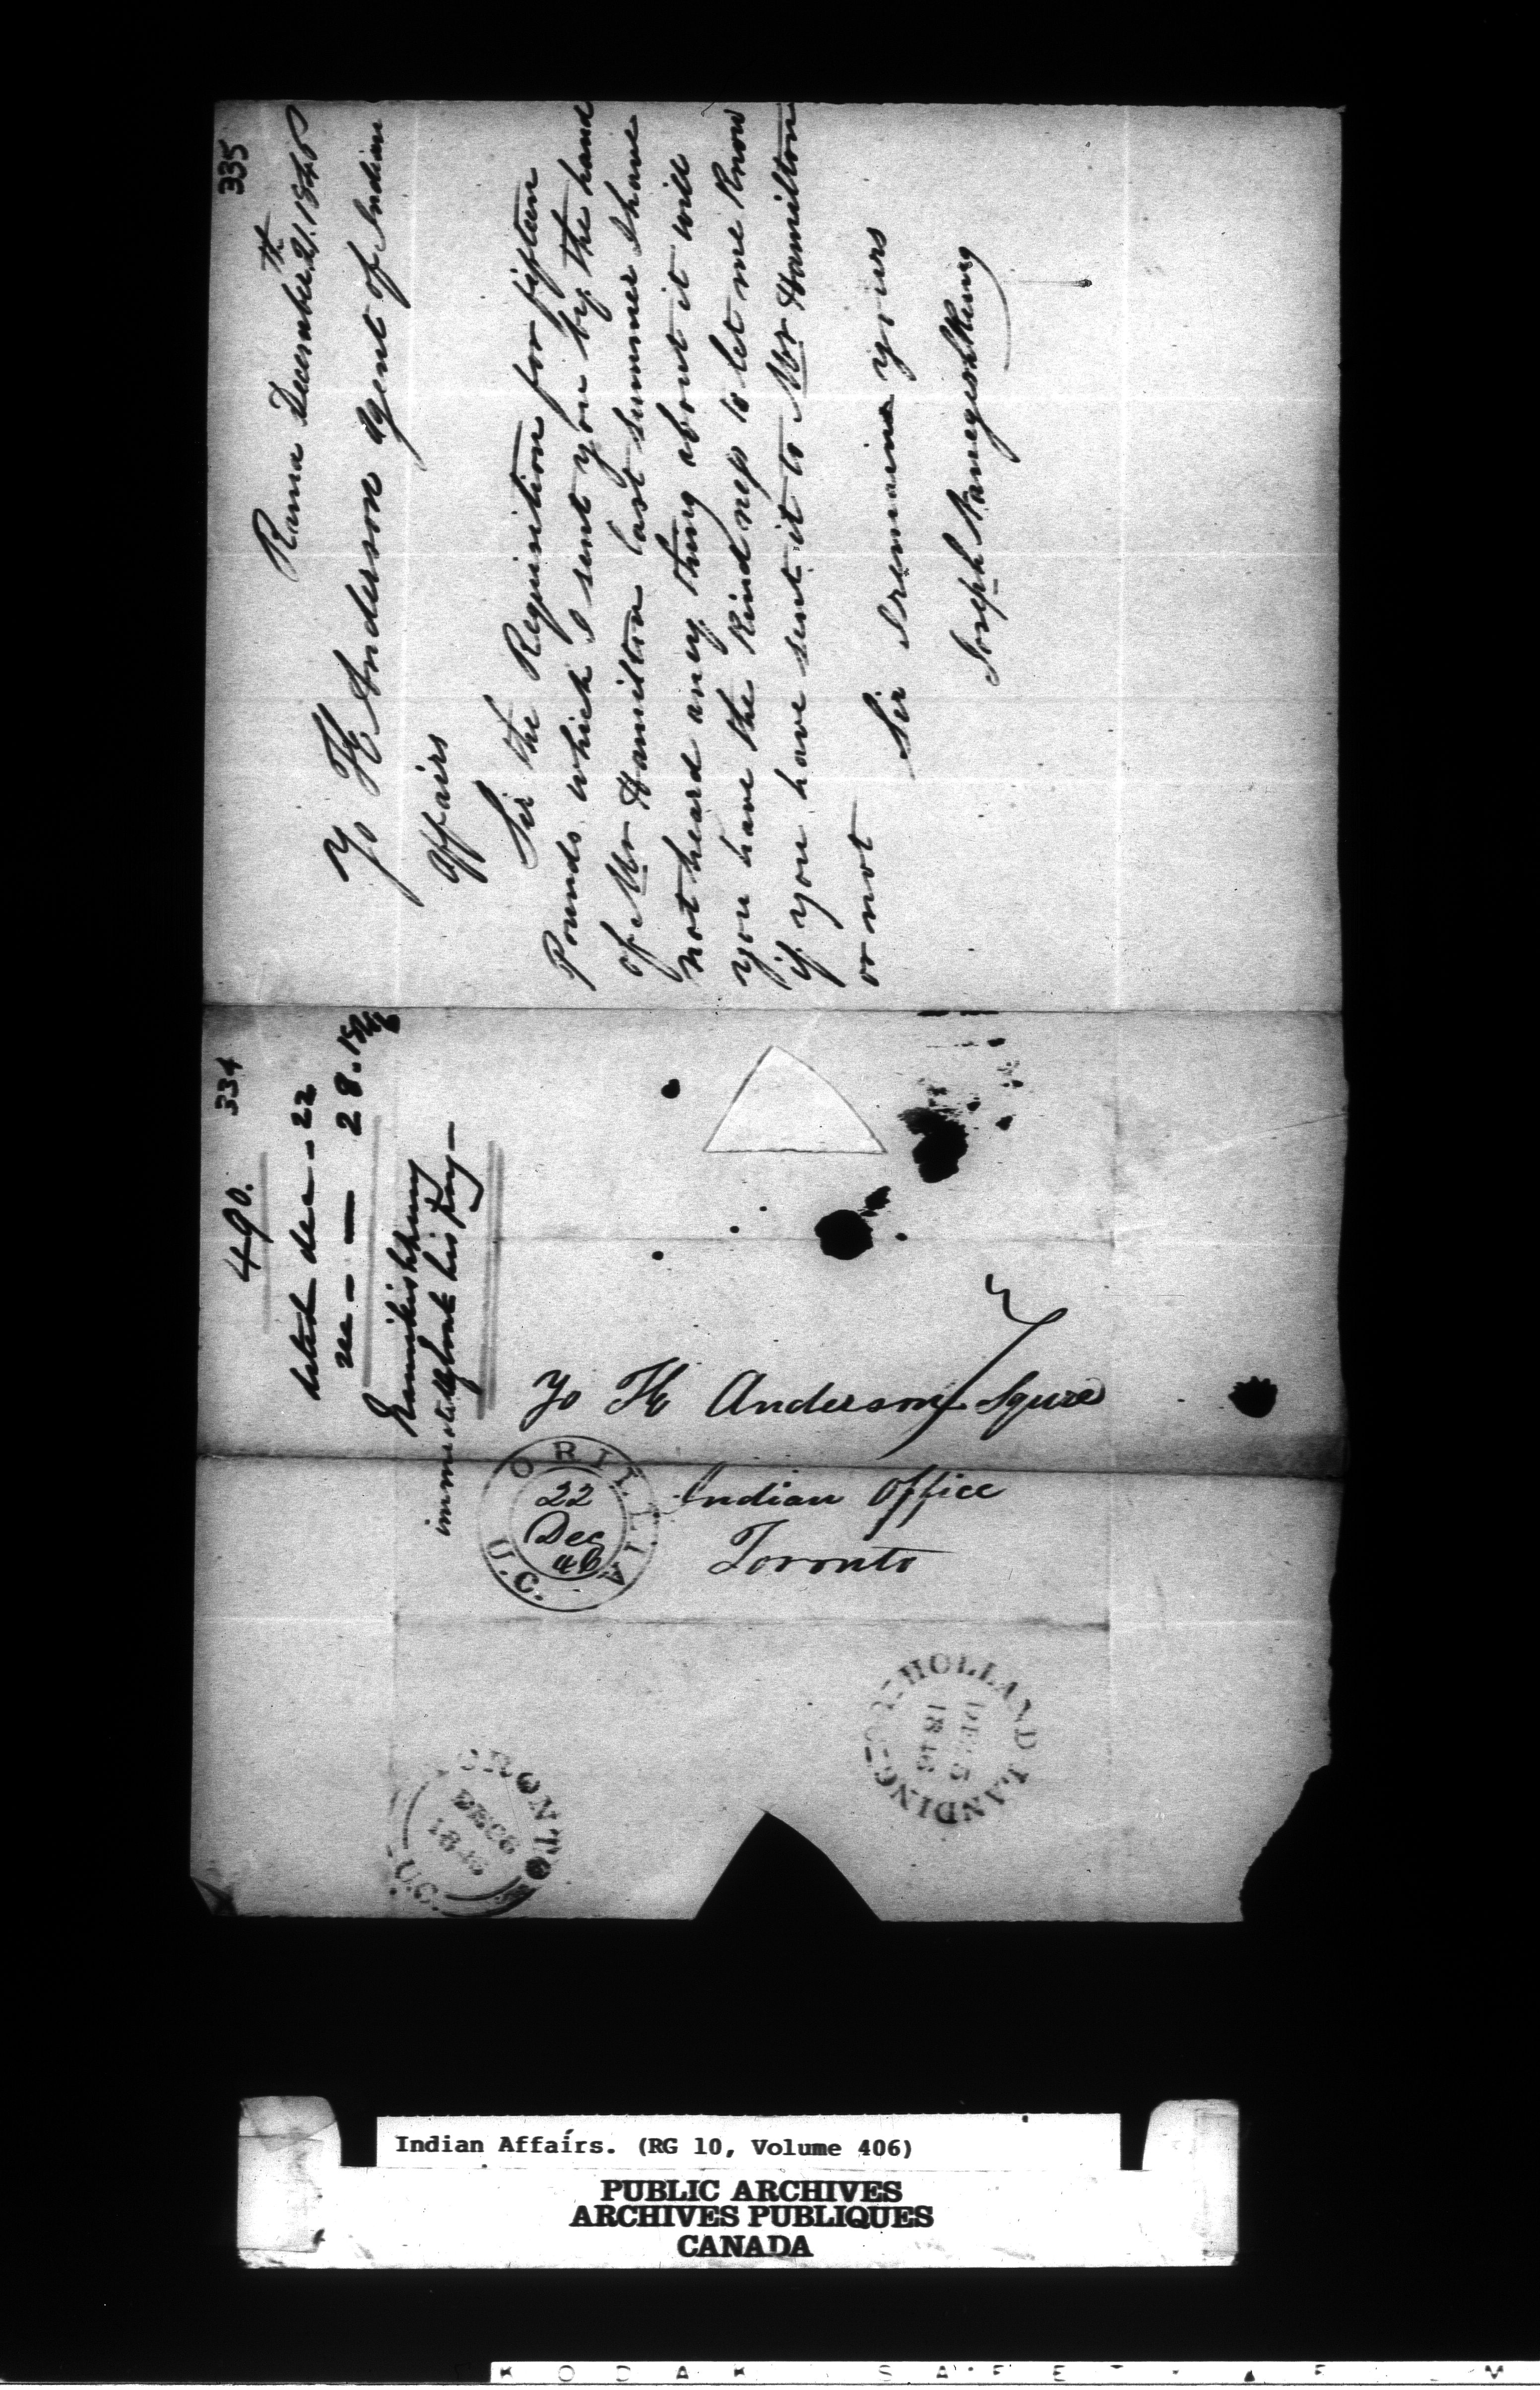 335
Rama December 21th 1846
To H Anderson Agent of Indian
Affairs
Sir the Requisition for fifteen
Pounds which I sent you by the hand
of Mr Hamilton last summer I have
not heard aney thing about it will
you have the kindness to let me know
if you have sent it to Mr Hamilton
or not
Sir I remain yours
Joseph
334
490.
dated dec - 22
rec - - - 28. 1846
his Pay -
To H Anderson Squre
Indian Office
Toronto
ORILLIA U.C.
22
Dec
46
HOLLAND LANDING
DEC 5
1846
TORONTO U.C.
DEC 6
1846
Indian Affairs. (RG 10, Volume 406)
PUBLIC ARCHIVES
ARCHIVES PUBLIQUES
CANADA
K O D A K S A F E T Y F I L M